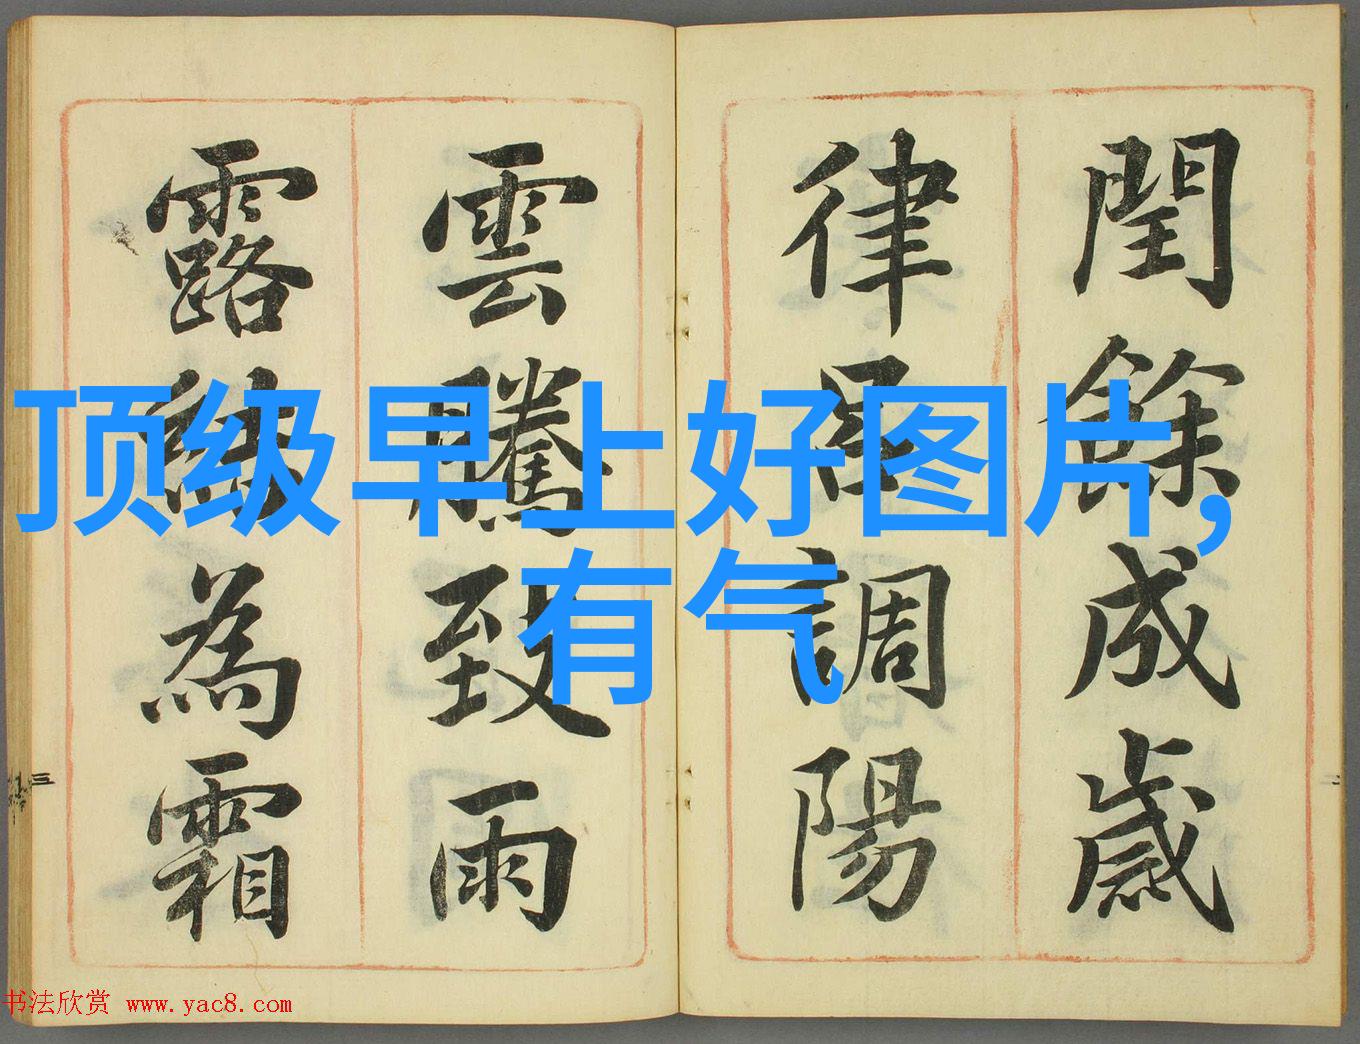 顶级早上好图片,
有气
閏餘成歲
律呂調陽
雲騰致雨
露結為霜
三
书法欣赏 www.yac8.com